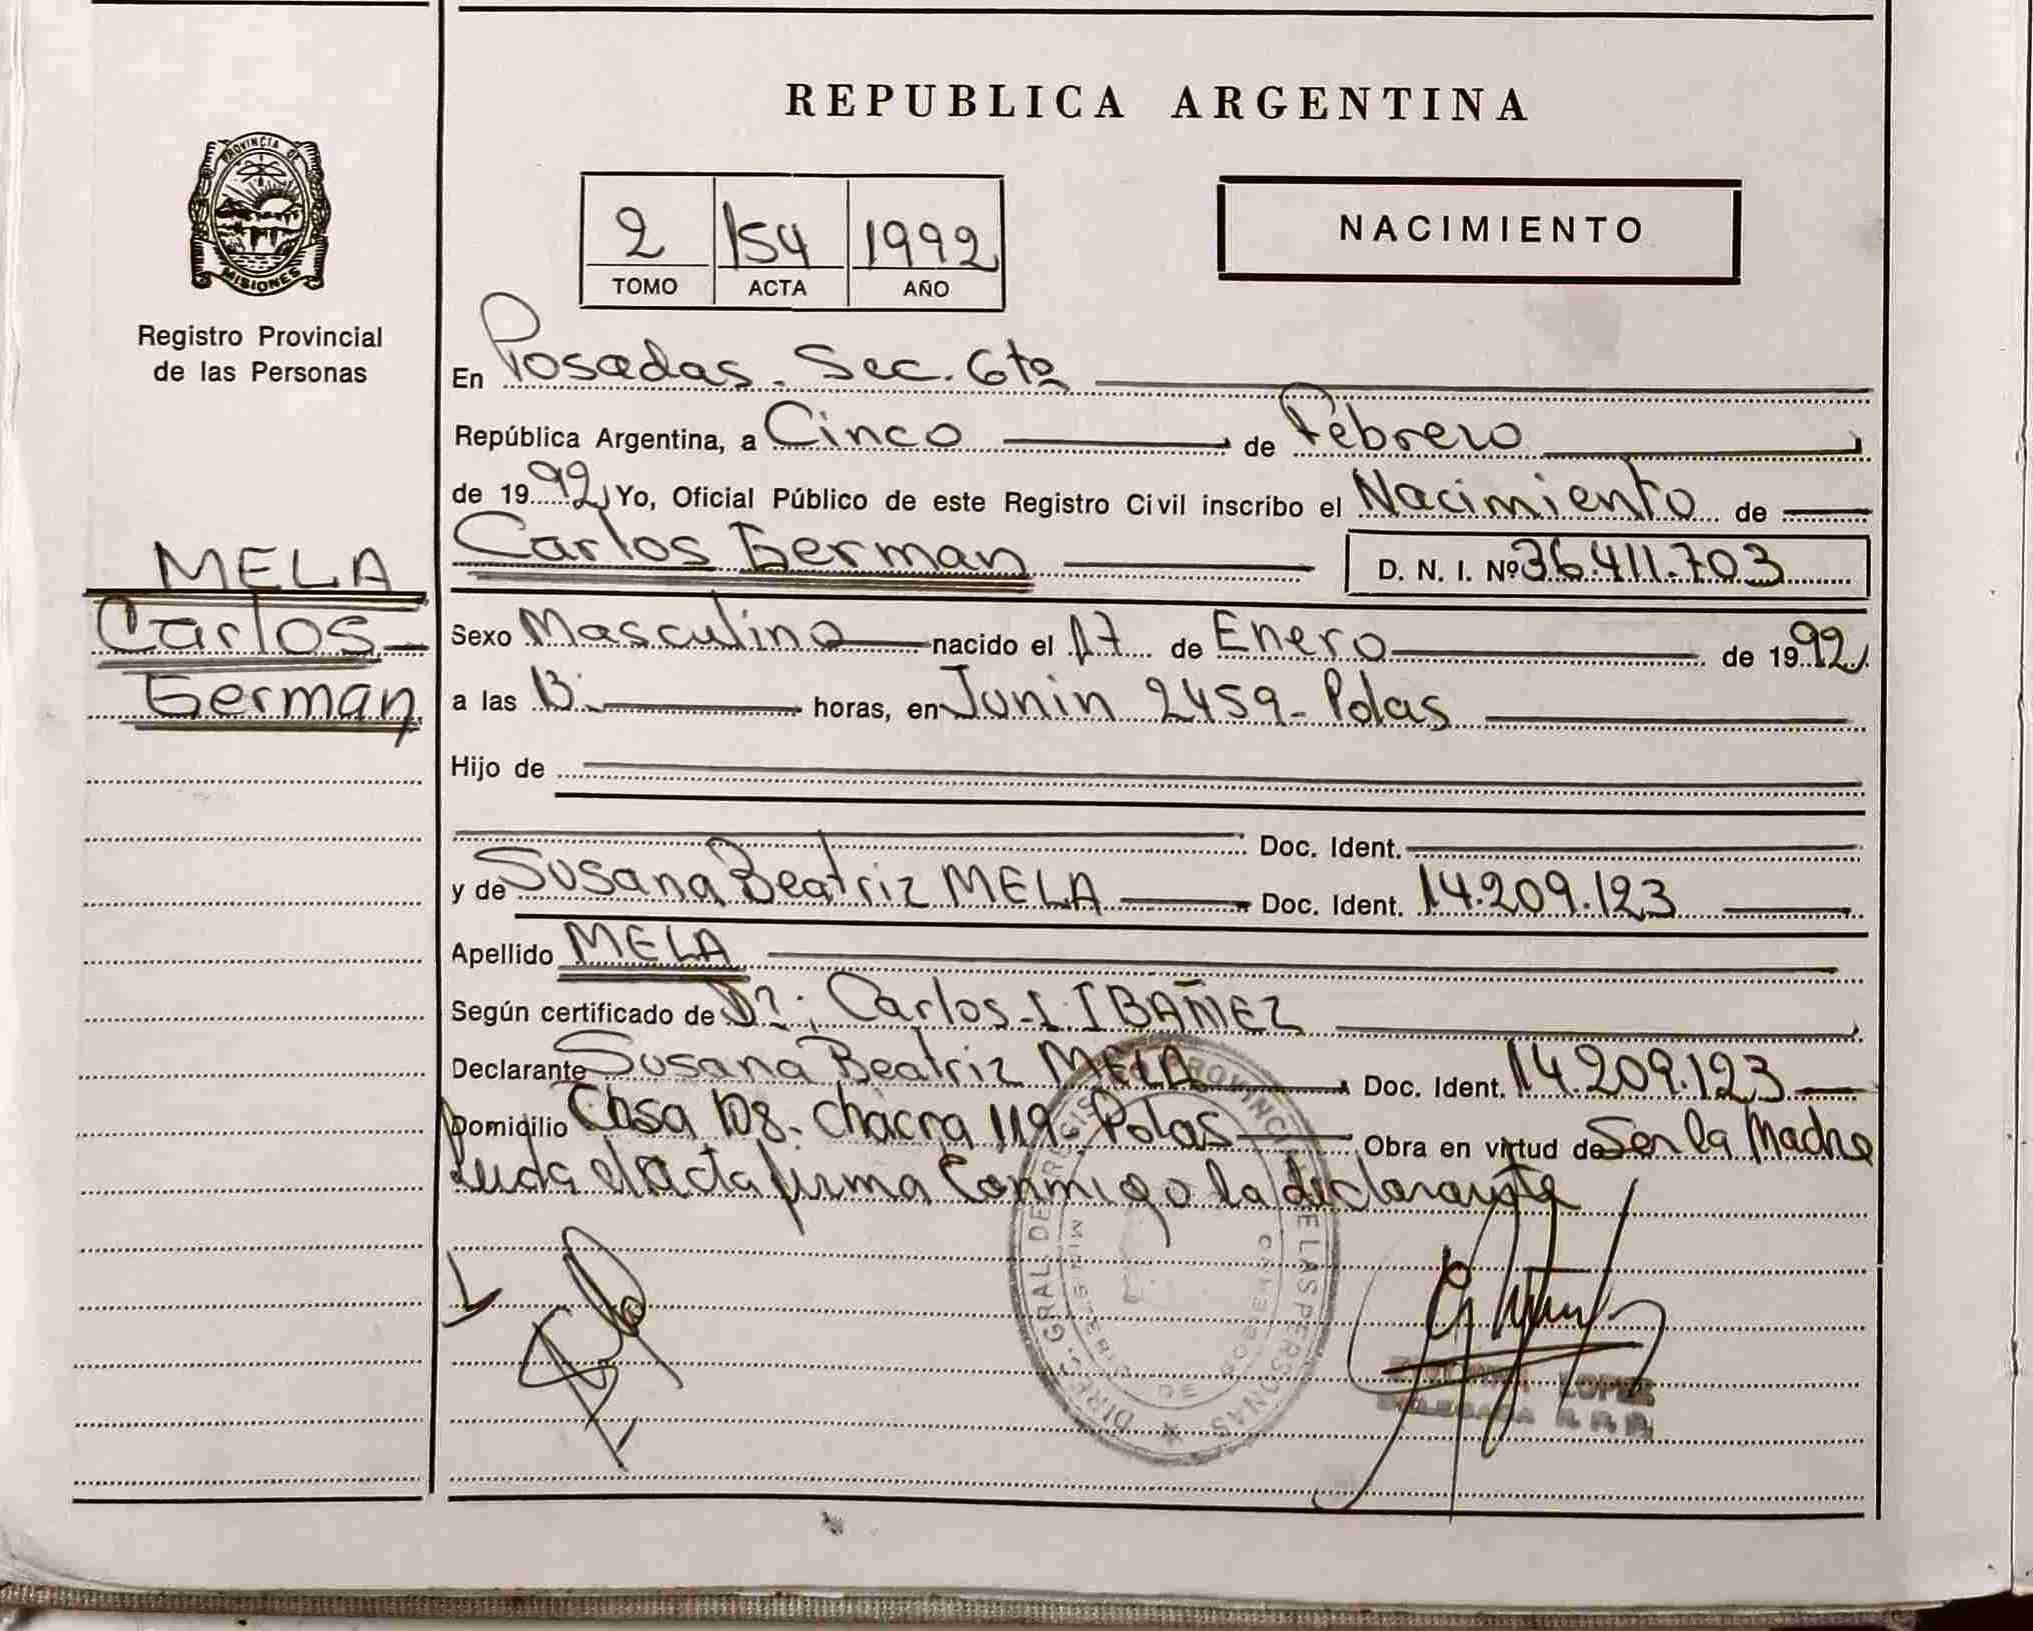 REPUBLICA ARGENTINA
PROVINCIA DE
MISIONES
Registro Provincial
de las Personas
2 154 1992
TOMO ACTA AÑO
NACIMIENTO
En Posadas. Sec. 6ta
República Argentina, a Cinco de Febrero
de 1992, Yo, Oficial Público de este Registro Civil inscribo el Nacimiento de
Carlos German D. N. I. Nº 36.411.703
MELA
Carlos
German
Sexo Masculino nacido el 17 de Enero de 1992,
a las 13. horas, en Junin 2459- Pdas
Hijo de
Doc. Ident.
y de Susana Beatriz MELA Doc. Ident. 14.209.123
Apellido MELA
Según certificado de Carlos I. IBAÑEZ
Declarante Susana Beatriz MELA Doc. Ident. 14.209.123
Domicilio Casa 108- chacra 119- Pdas Obra en virtud de Ser la Madre
Leida el acta firma Conmigo la declarante
DIREC. GRAL. DE REGISTRO PROVINCIAL DE LAS PERSONAS
MINISTERIO DE GOBIERNO
LOPEZ
DELEGADA R. P. P.